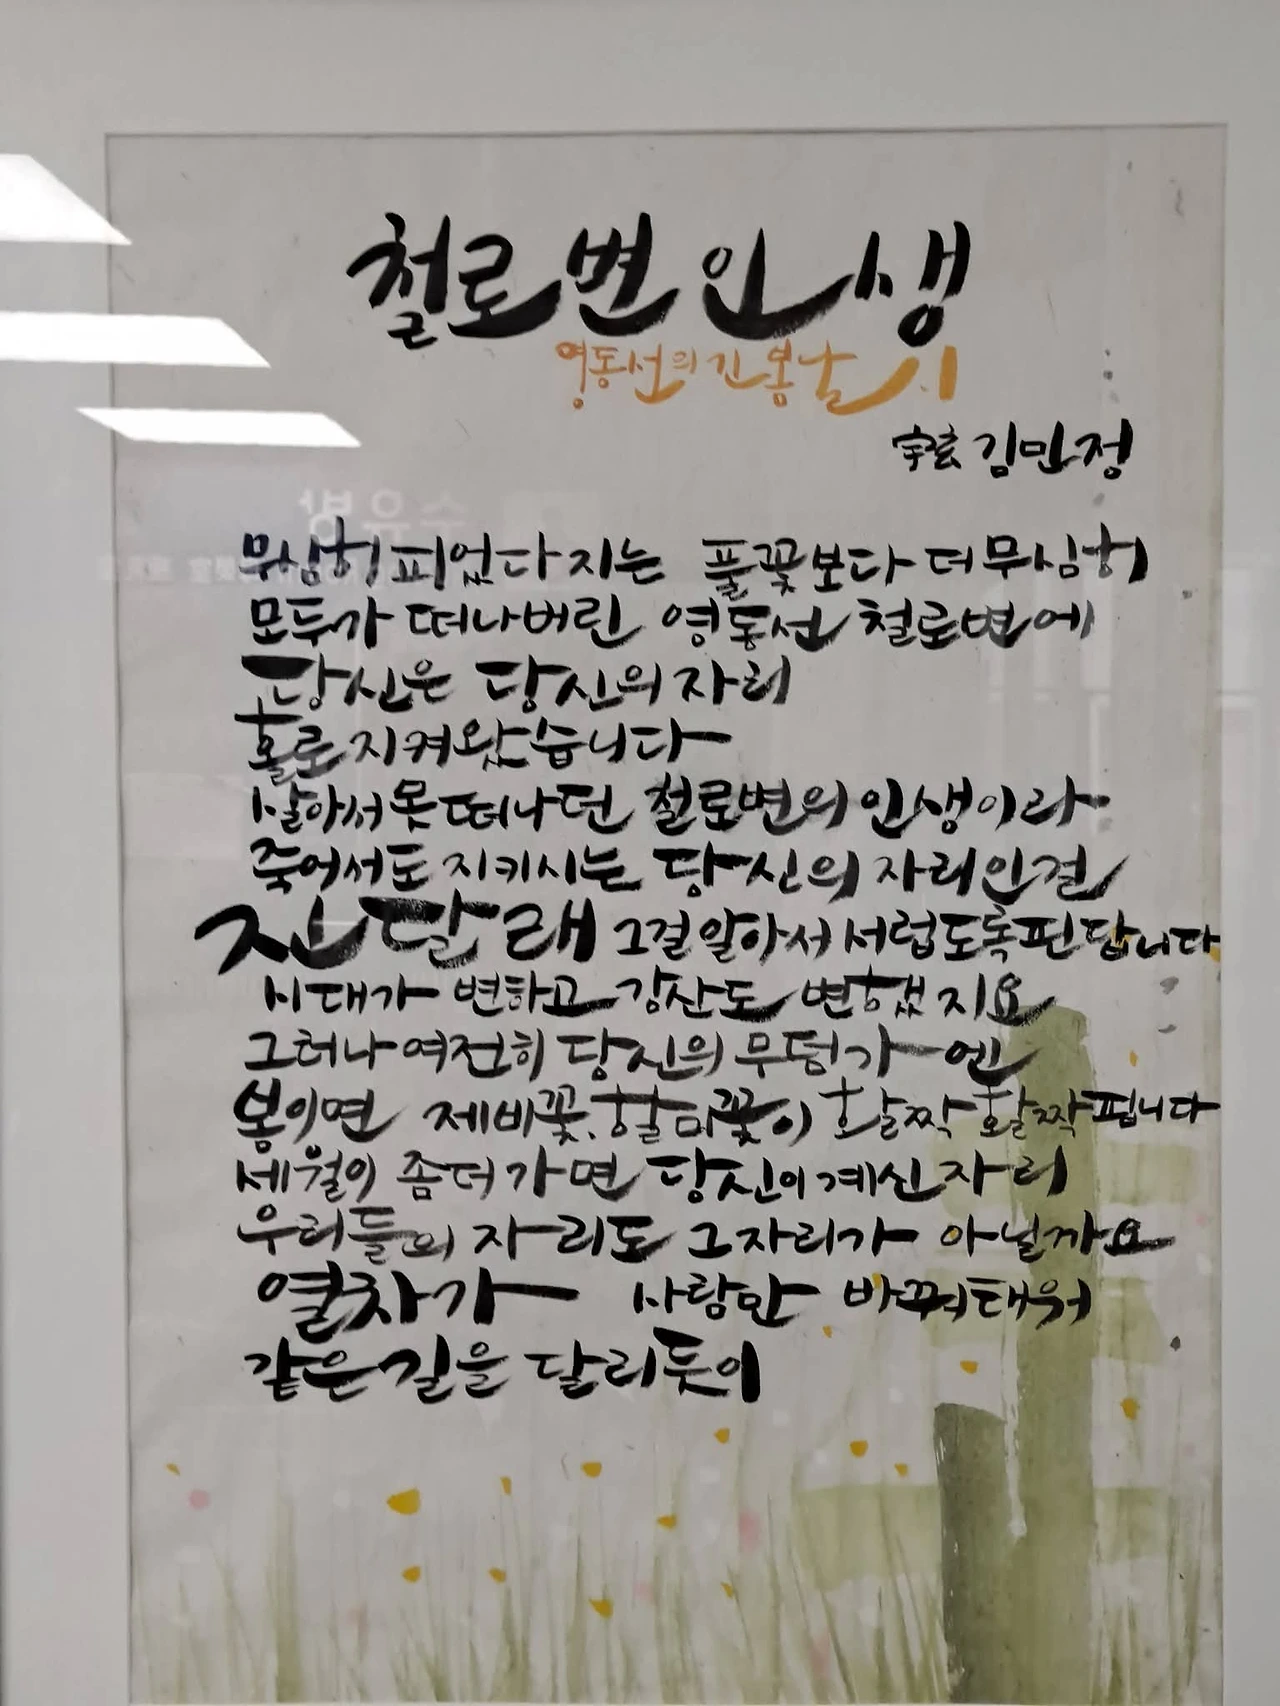 철로변 인생
영동선의 긴 봄날 1
宇玄 김민정
무심히 피었다 지는 풀꽃보다 더 무심히
모두가 떠나버린 영동선 철로변에
당신은 당신의 자리
홀로 지켜왔습니다
살아서 못 떠나던 철로변의 인생이라
죽어서도 지키시는 당신의 자리인걸
진달래 그걸 알아서 서럽도록 핀답니다
시대가 변하고 강산도 변했지요
그러나 여전히 당신의 무덤가엔
봄이면 제비꽃, 할미꽃이 활짝 활짝 핍니다
세월이 좀더 가면 당신이 계신 자리
우리들의 자리도 그 자리가 아닐까요
열차가 사람만 바꿔 태워
같은 길을 달리듯이